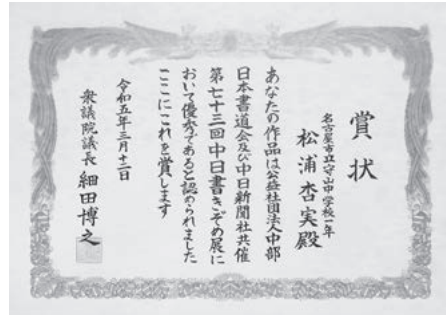 賞状
名古屋市立守山中学校一年
松浦杏実殿
あなたの作品は公益社団法人中部
日本書道会及び中日新聞社共催
第七十三回中日書きぞめ展に
おいて優秀であると認められました
ここにこれを賞します
令和五年三月十二日
衆議院議長 細田博之